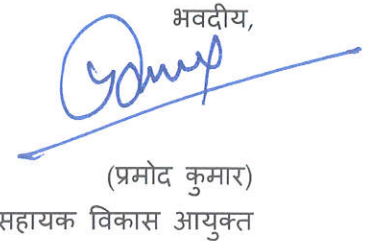 भवदीय,
(प्रमोद कुमार)
सहायक विकास आयुक्त